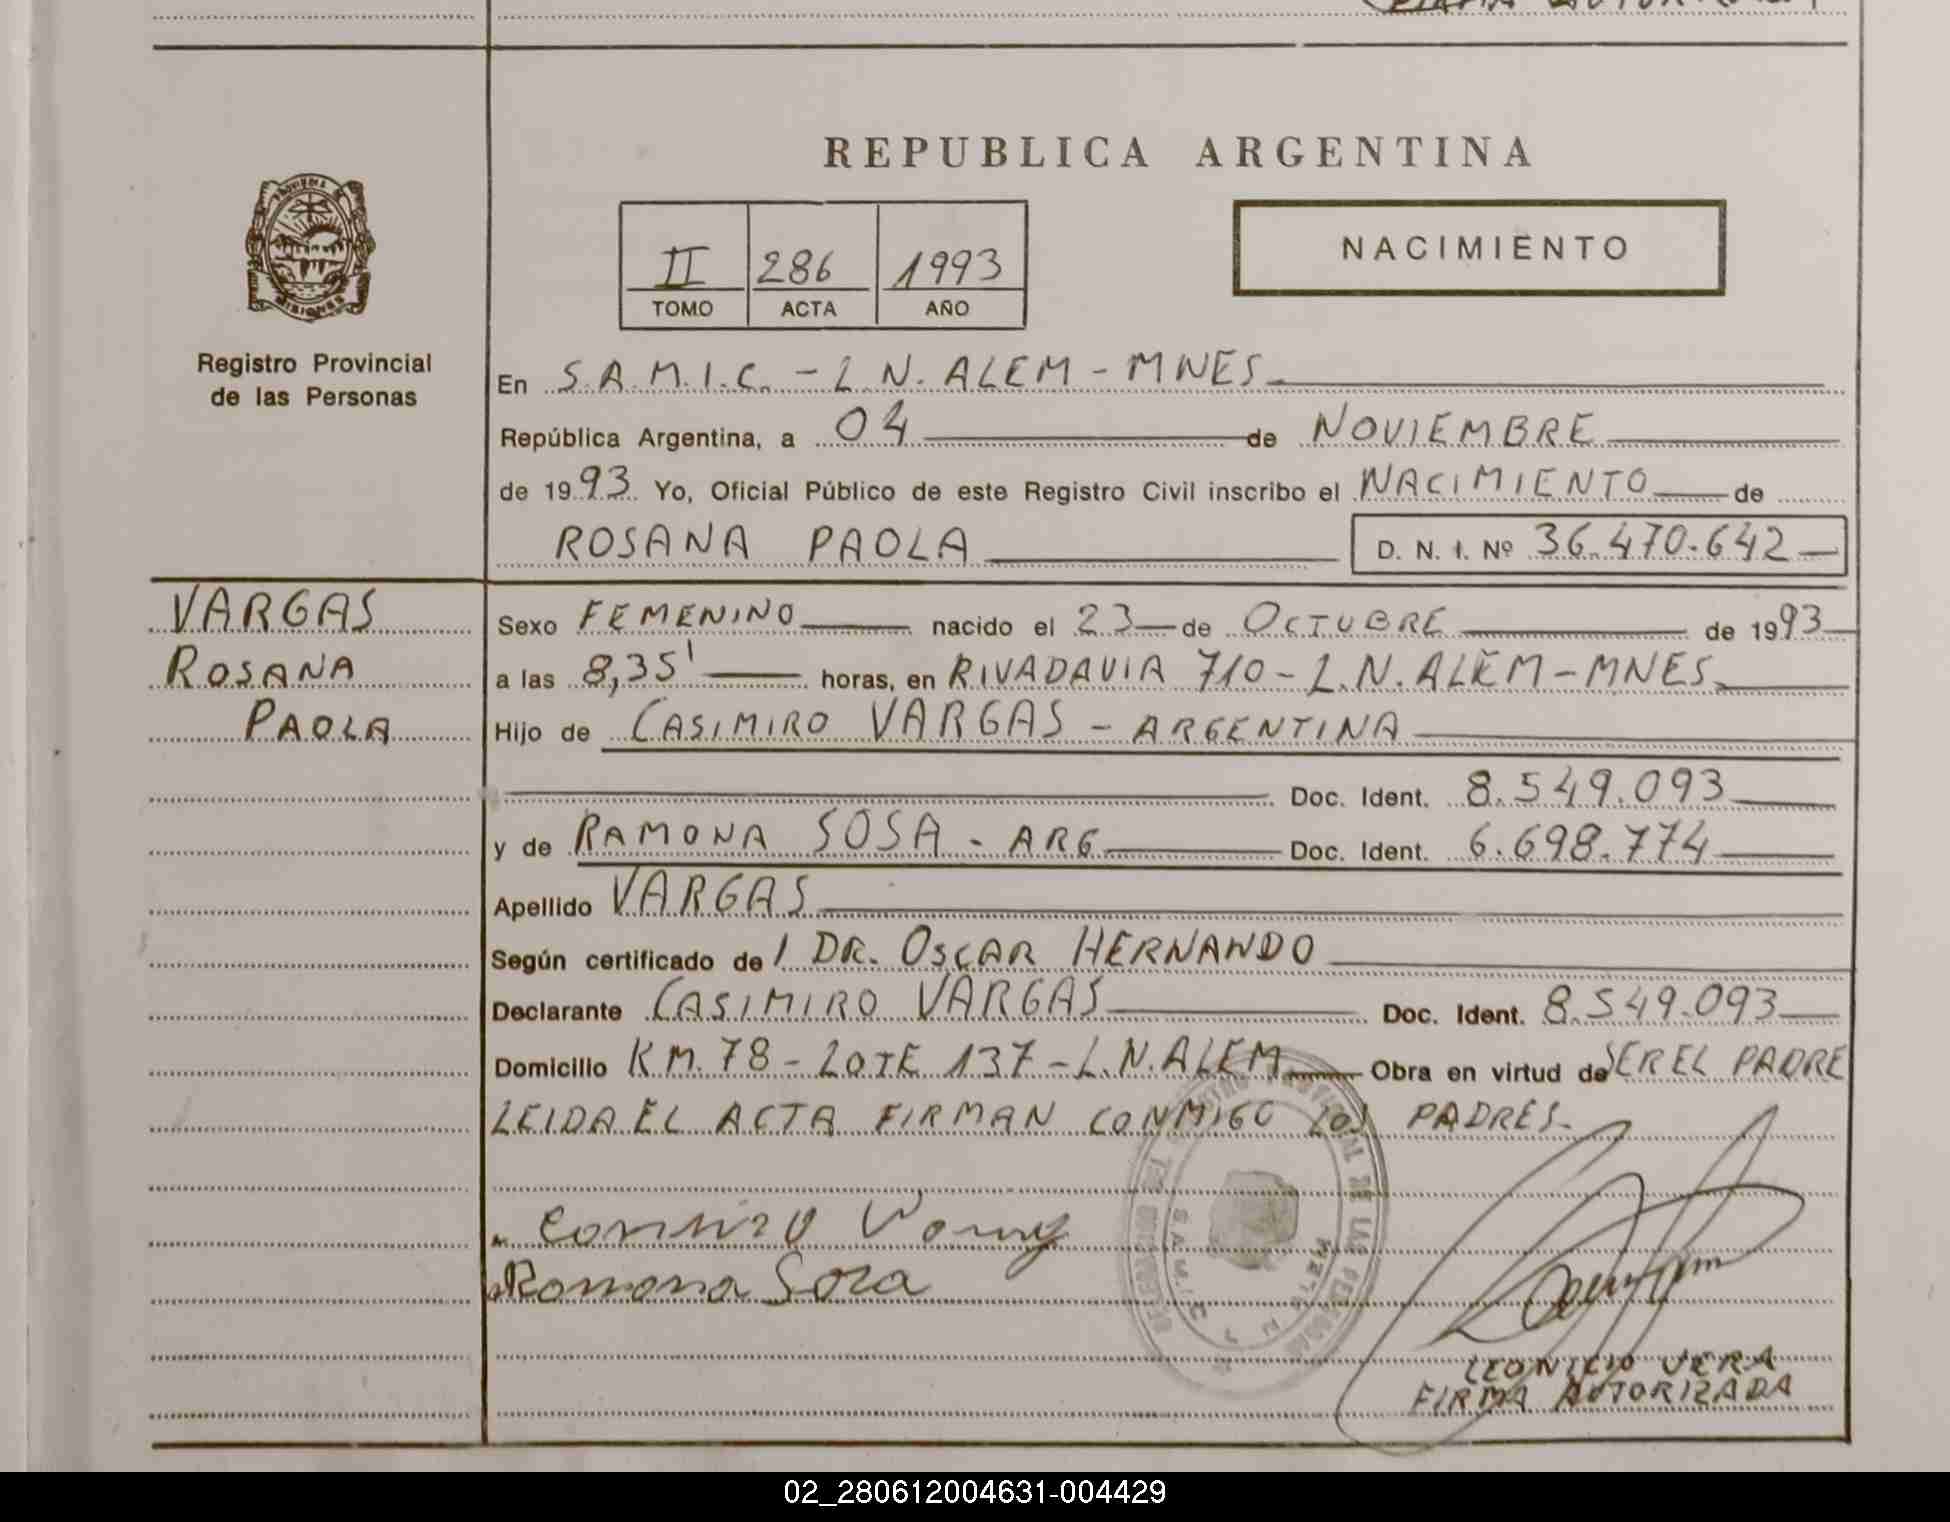 REPUBLICA ARGENTINA
II 286 1993
TOMO ACTA AÑO
NACIMIENTO
PROVINCIA DE
MISIONES
Registro Provincial
de las Personas
En S.A.M.I.C. - L.N. ALEM - MNES
República Argentina, a 04 de NOVIEMBRE
de 1993 Yo, Oficial Público de este Registro Civil inscribo el NACIMIENTO de
ROSANA PAOLA D. N. I. Nº 36.470.642
VARGAS
ROSANA
PAOLA
Sexo FEMENINO nacido el 23 de OCTUBRE de 1993
a las 8,35' horas, en RIVADAVIA 710 - L.N. ALEM - MNES
Hijo de CASIMIRO VARGAS - ARGENTINA
Doc. Ident. 8.549.093
y de RAMONA SOSA - ARG Doc. Ident. 6.698.774
Apellido VARGAS
Según certificado de / DR. OSCAR HERNANDO
Declarante CASIMIRO VARGAS Doc. Ident. 8.549.093
Domicilio KM. 78 - LOTE 137 - L.N. ALEM Obra en virtud de SER EL PADRE
LEIDA EL ACTA FIRMAN CONMIGO LOS PADRES.
Ramona Sosa
LEONICIO VERA
FIRMA AUTORIZADA
02_280612004631-004429